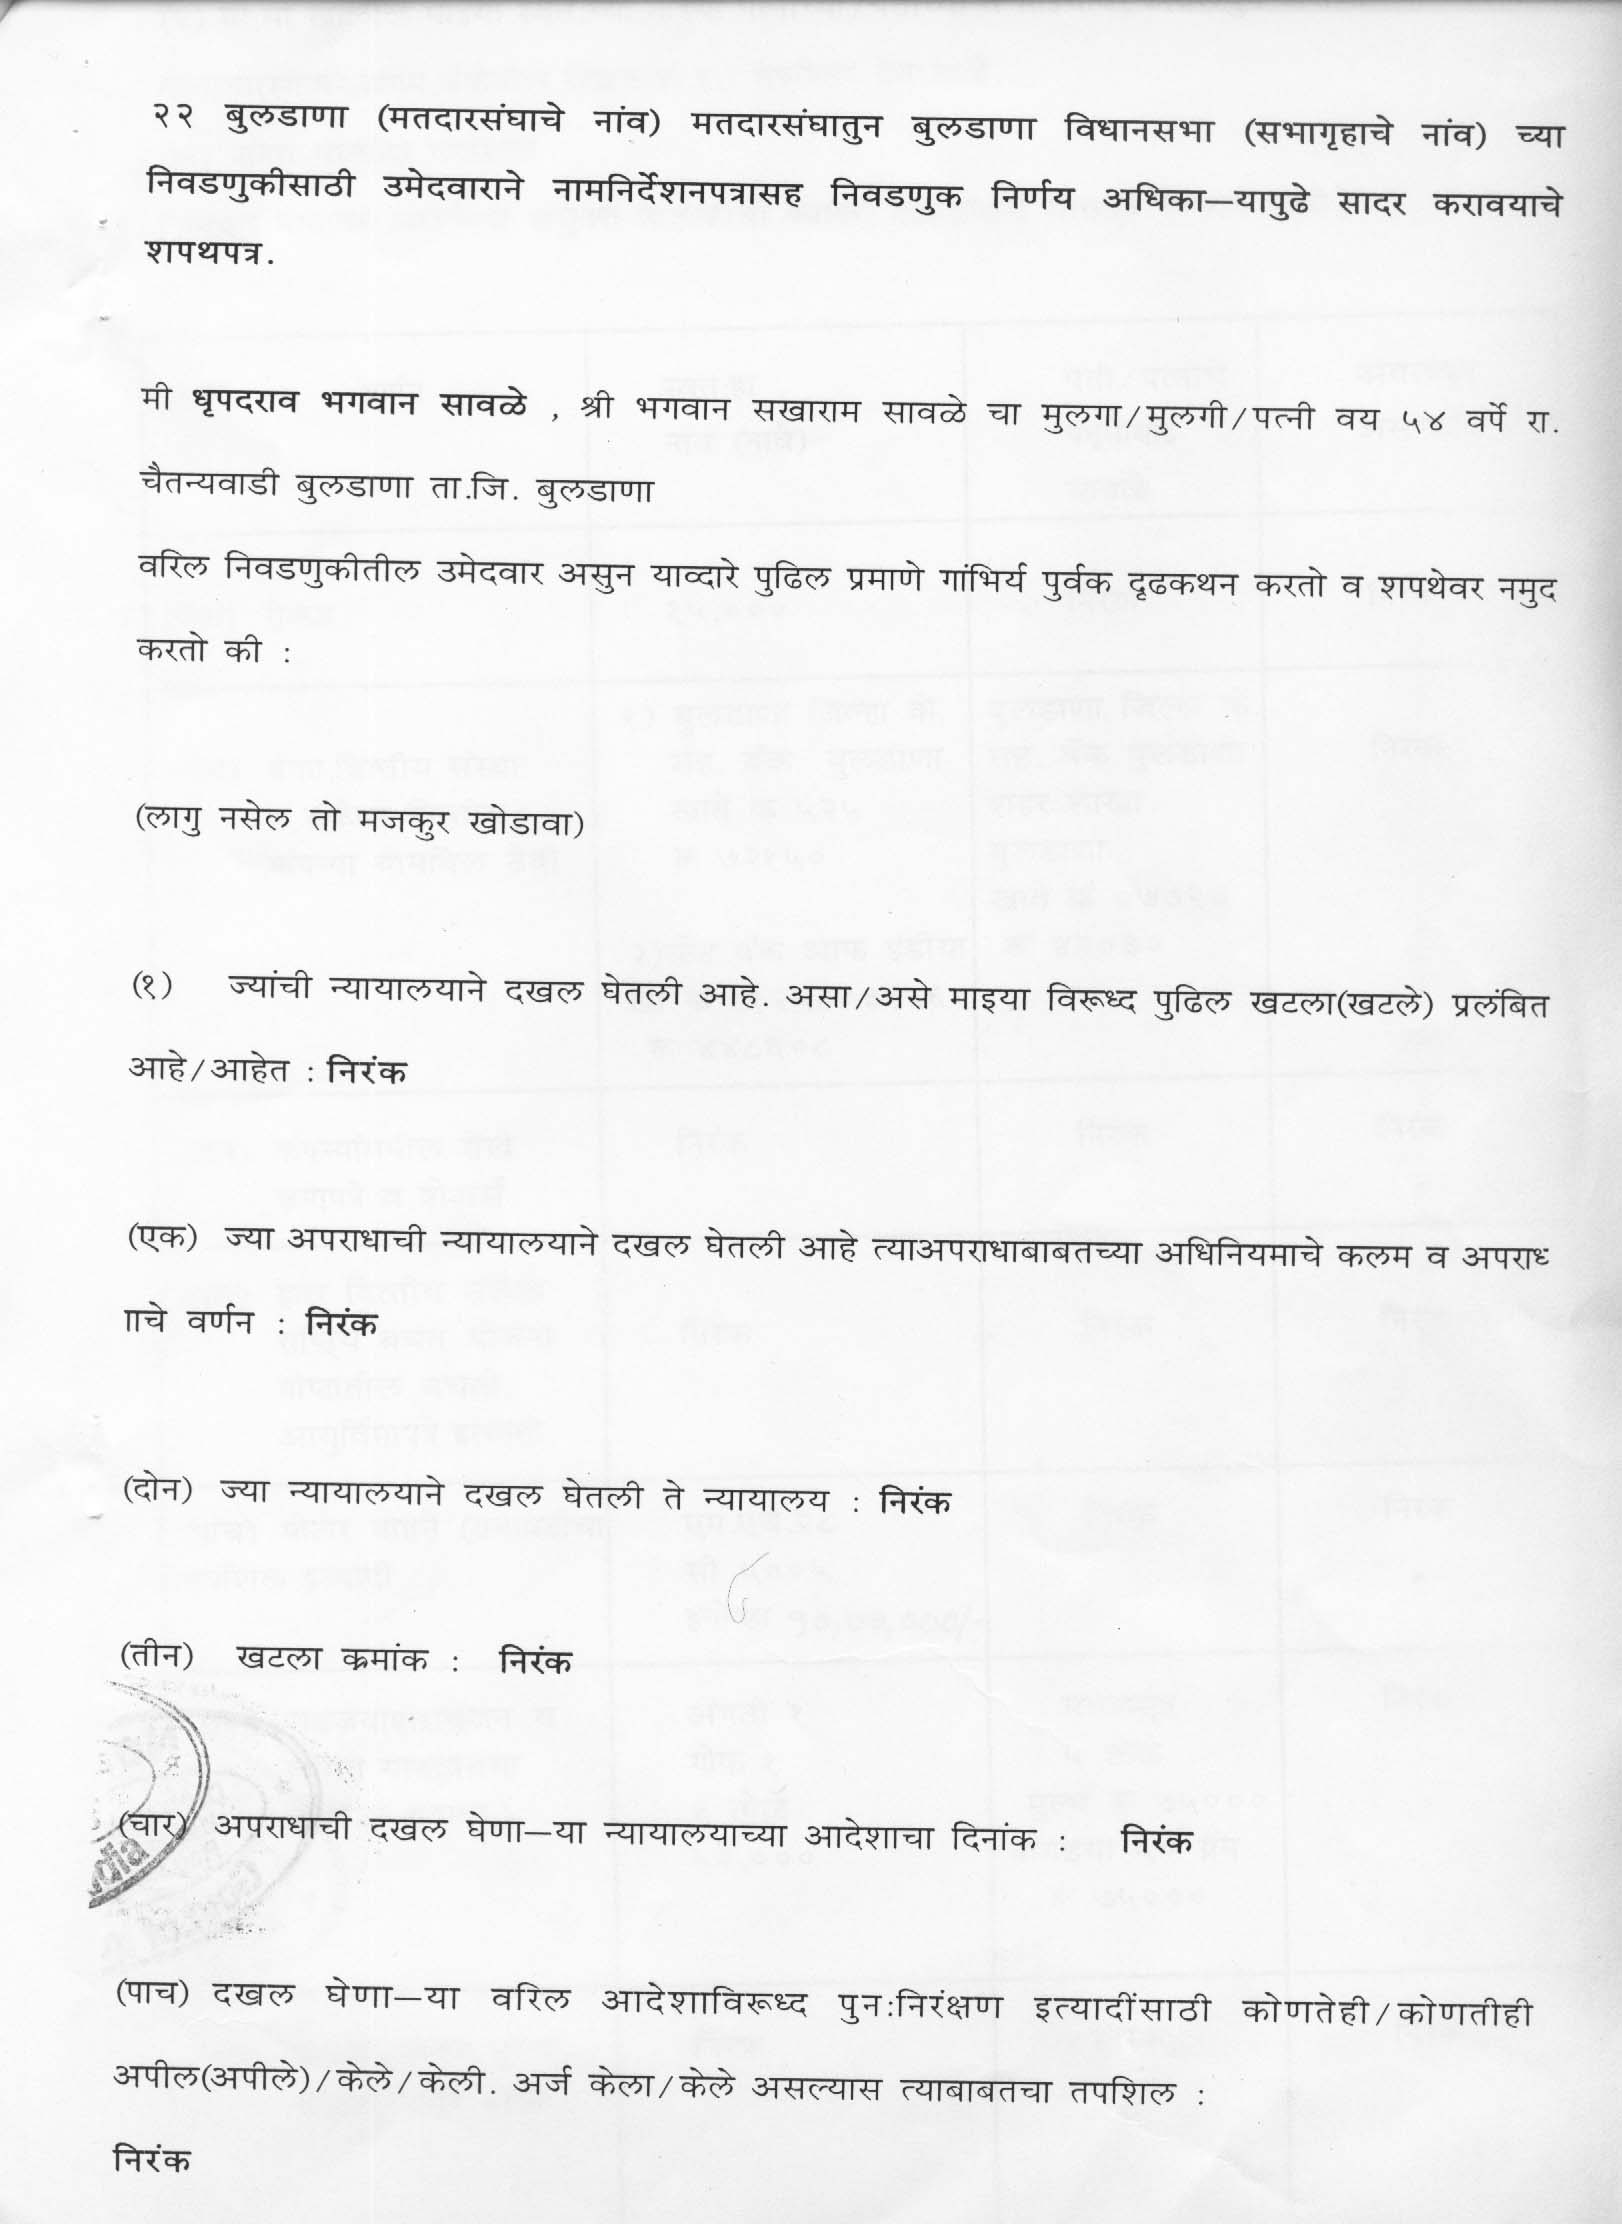 २२ बुलडाणा (मतदारसंघाचे नांव) मतदारसंघातुन बुलडाणा विधानसभा (सभागृहाचे नांव) च्या
निवडणुकीसाठी उमेदवाराने नामनिर्देशनपत्रासह निवडणुक निर्णय अधिका—यापुढे सादर करावयाचे
शपथपत्र.
मी धृपदराव भगवान सावळे , श्री भगवान सखाराम सावळे चा मुलगा/मुलगी/पत्नी वय ५४ वर्पे रा.
चैतन्यवाडी बुलडाणा ता.जि. बुलडाणा
वरिल निवडणुकीतील उमेदवार असुन याव्दारे पुढिल प्रमाणे गांभिर्य पुर्वक दृढकथन करतो व शपथेवर नमुद
करतो की :
(लागु नसेल तो मजकुर खोडावा)
(१) ज्यांची न्यायालयाने दखल घेतली आहे. असा/असे माझ्या विरूध्द पुढिल खटला(खटले) प्रलंबित
आहे/आहेत : निरंक
(एक) ज्या अपराधाची न्यायालयाने दखल घेतली आहे त्याअपराधाबाबतच्या अधिनियमाचे कलम व अपराध
ााचे वर्णन : निरंक
(दोन) ज्या न्यायालयाने दखल घेतली ते न्यायालय : निरंक
(तीन) खटला क्रमांक : निरंक
(चार) अपराधाची दखल घेणा—या न्यायालयाच्या आदेशाचा दिनांक : निरंक
(पाच) दखल घेणा—या वरिल आदेशाविरूध्द पुन:निरंक्षण इत्यादींसाठी कोणतेही/कोणतीही
अपील(अपीले)/केले/केली. अर्ज केला/केले असल्यास त्याबाबतचा तपशिल :
निरंक